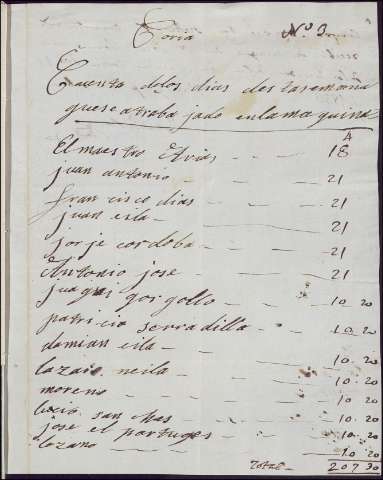 Coria Nº 3
Cuenta delos dias destasemana
quese atraba jado enlamaquina
A
El maestro Arias - - 18
juan antonio - - - 21
francisco dias - - 21
juan eila - - - 21
jorje cordoba - - - 21
Antonio jose - - - 21
juaqui gorgollo - - - 10 20
patricio serradilla - - 10 20
damian eila - - - 10 20
lazaro neila - - - 10 20
moreno - - - 10 20
san blas - - - 10 20
jose el portuges - - 10 20
lozano - - - 10 20
total - 207 30